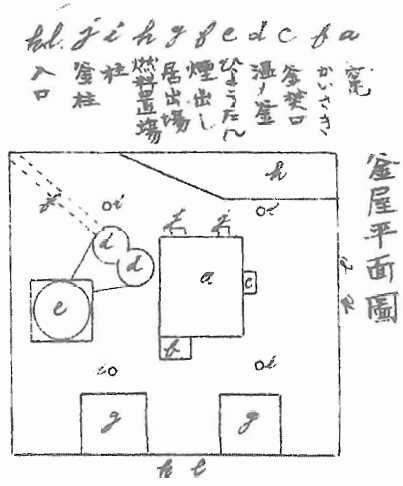 釜屋平面圖
a
b かいさき
c 釜焚口
d 温メ釜
e ひようたん
f 煙出し
g 居出場
h 燃料置場
i 柱
j 釜柱
k l 入口
h
f
i
i
j
j
d
d
a
c
e
b
i
i
g
g
k l